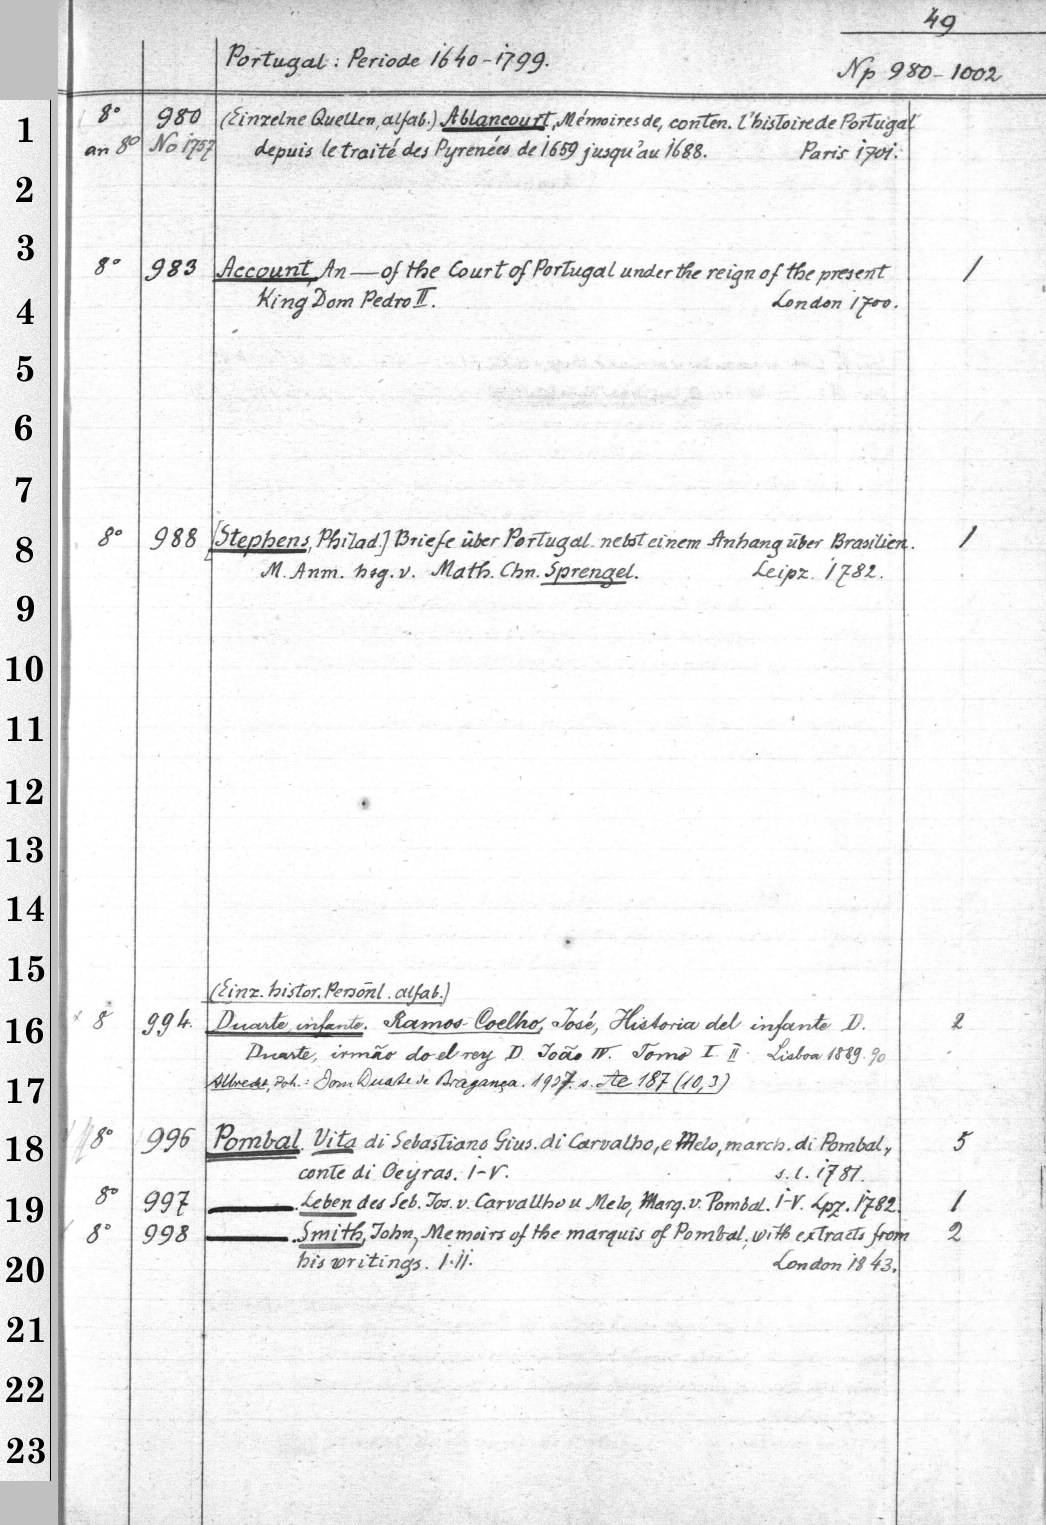 49
Portugal: Periode 1640-1799.
Np 980-1002
1
8° 980 (Einzelne Quellen, alfab.) Ablancourt, Mémoires de, conten. l'histoire de Portugal
an 8° No 1757 depuis le traité des Pyrenées de 1659 jusqu'au 1688. Paris 1701.
2
3
8° 983 Account, An — of the Court of Portugal under the reign of the present 1
4 King Dom Pedro II. London 1700.
5
6
7
8 8° 988 [Stephens, Philad.] Briefe über Portugal nebst einem Anhang über Brasilien. 1
M. Anm. hsg. v. Math. Chn. Sprengel. Leipz. 1782.
9
10
11
12
13
14
15
(Einz. histor. Persönl. alfab.)
16 8° 994. Duarte, infante. Ramos-Coelho, José, Historia del infante D. 2
Duarte, irmão do el rey D. João IV. Tomo I. II. Lisboa 1889. 90
17 Albrecht, Joh.: Dom Duarte de Bragança. 1927. s. Ae 187 (10,3)
18 8° 996 Pombal. Vita di Sebastiano Gius. di Carvalho, e Melo, march. di Pombal, 5
conte di Oeyras. I-V. s. l. 1781.
19 8° 997 —— Leben des Seb. Jos. v. Carvallho u Melo, Marq. v. Pombal. I-V. Lpz. 1782. 1
8° 998 —— Smith, John, Memoirs of the marquis of Pombal, with extracts from 2
20 his writings. I.II. London 1843.
21
22
23